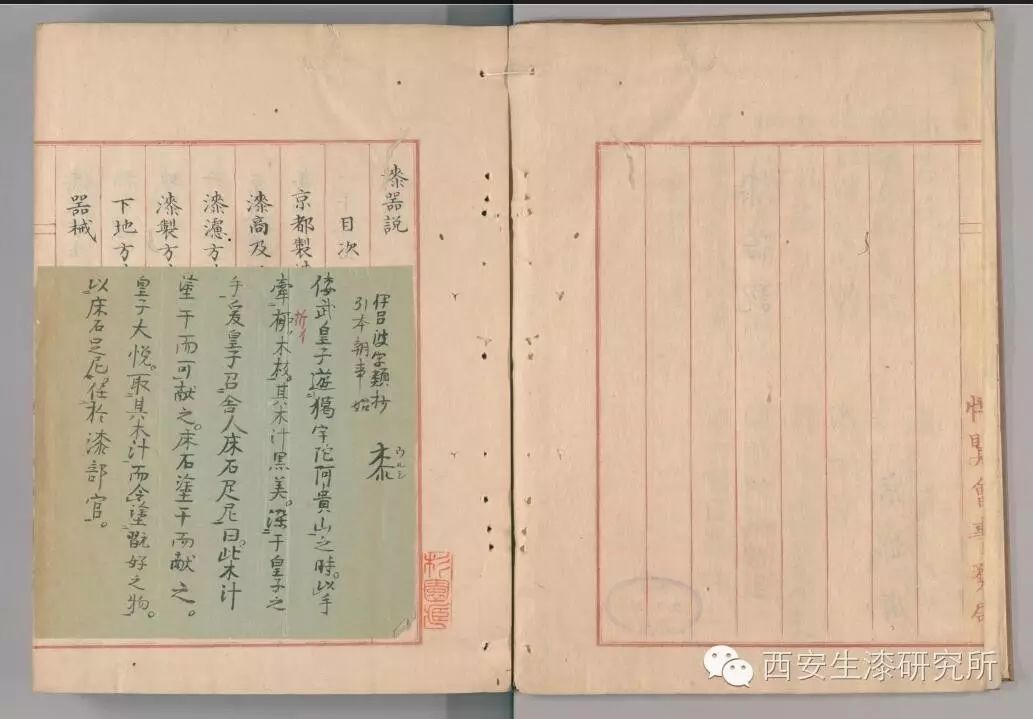 漆器説
目次
京都製
漆商及
漆濾方
漆製方
下地方
器械
伊呂波字類抄
引本朝事始
漆
ウルシ
倭武皇子遊猟宇陀阿貴山之時。以手
牽折木枝。其木汁黒美。染于皇子之
手爰皇子召舎人床石足尼曰。此木汁
塗干而可献之。床石塗干而献之。
皇子大悦。取其木汁而令塗翫好之物。
以床石足尼。任於漆部官。
博覧會事務局
西安生漆研究所